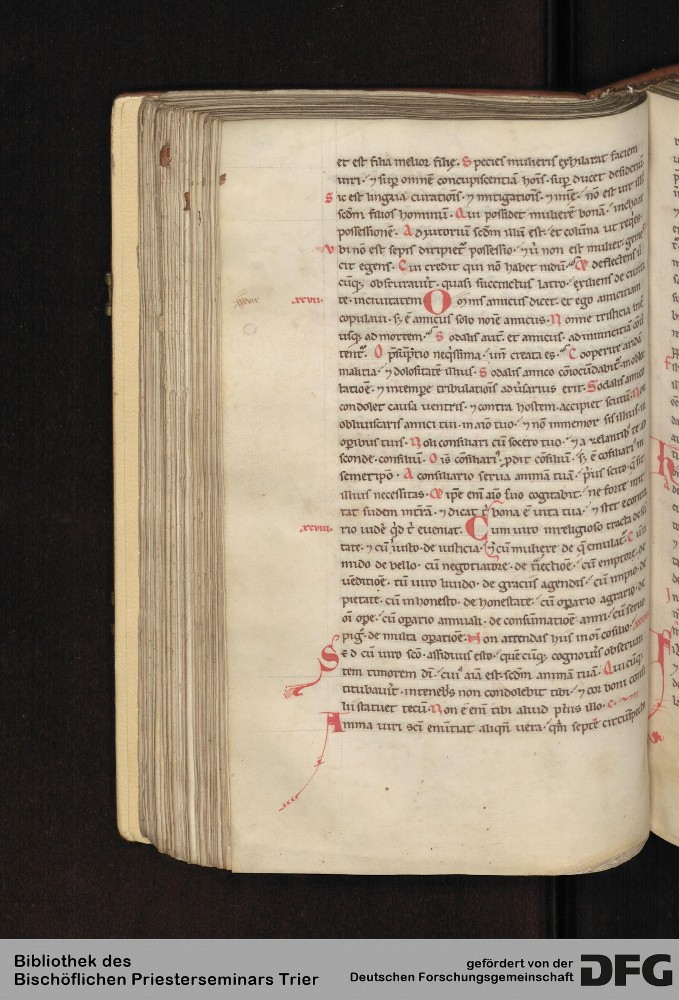 et est filia melior filię. Species mulieris exhilarat faciem
uiri. ⁊ sup omnē concupiscentiā hoīs. sup ducet desideriū.
Sic est lingua curationis. ⁊ mitigationis. ⁊ mīe. nō est uir illi
scdm filios hominum. Qui possidet mulierē bonā. inchoat
possessionē. Adiutorium scdm illū est. et colūna ut reqes.
Vbi nō est sepis diripiet possessio. ⁊ ubi non est mulier. gemes
cit egens. Cui credit qui nō habet nidū. ⁊ deflectens u
cūq. obscurauit. quasi succinctus latro. exiliens de ciuita
te. in ciuitatem
xcvii. Omnis amicus dicet. et ego amicitiam
copulaui. s; ē amicus solo noīe amicus. Nonne tristicia inē
usq; ad mortem. Sodalis aut et amicus. ad inimicitiā conū
tent. O psūptio neqissima. unde creata es. Cooperire aridā
malitia. ⁊ dolositate illius. Sodalis amico coniocundabit in oblec
tatioē. ⁊ in tempe tribulationis adūsarius erit. Sodalis amico
condolet causa uentris. ⁊ contra hostem accipiet scutū. Non
obliuiscaris amici tui in aīo tuo. ⁊ nō immemor sis illius. in
opibus tuis. Noli consiliari cū socero tuo. ⁊ a zelantib te ab
sconde consiliū. Oīs cōsiliari pdit cōsiliū. s; ē cōsiliari in
semetipō. A consiliario serua animā tuā. p̄us scito. q sit
illius necessitas. ⁊ ipe enī aīo suo cogitabit. ne forte mit
tat sudem in tr̄am. ⁊ dicat t bona ē uita tua. ⁊ stet e contra
rio uidē qd t eueniat.
xcviii. Cum uiro irreligioso tracta de sci
tate. ⁊ cū iniusto de iusticia. ⁊ cū muliere de q̄ emulat. Cū ti
mido de bello. cū negotiatore. de tiectioē. cū emptore. de
uēditiōe. cū uiro liuido. de gracius agendis. cū impio. de
pietate. cū inhonesto. de honestate. cū opatio agrario. de
oī ope. cū opatio annuali. de consūmatioē anni. cū seruo
pig. de multa opatioē. Non attendas his in oī cōsilio.
Sed cū uiro scō. assiduus esto. quē cūq; cognouis obseruan
tem timorem dī. cui aīa est scdm animā tuā. Qui cūq;
titubauit. in tenebs non condolebit tibi. ⁊ cor boni consi
lii statuet tecū. Non ē enī tibi aliud plius illo.
Anima uiri scī enūtiat aliqn uera. qm septē circūspecto
Bibliothek des
Bischöflichen Priesterseminars Trier
gefördert von der
Deutschen Forschungsgemeinschaft
DFG